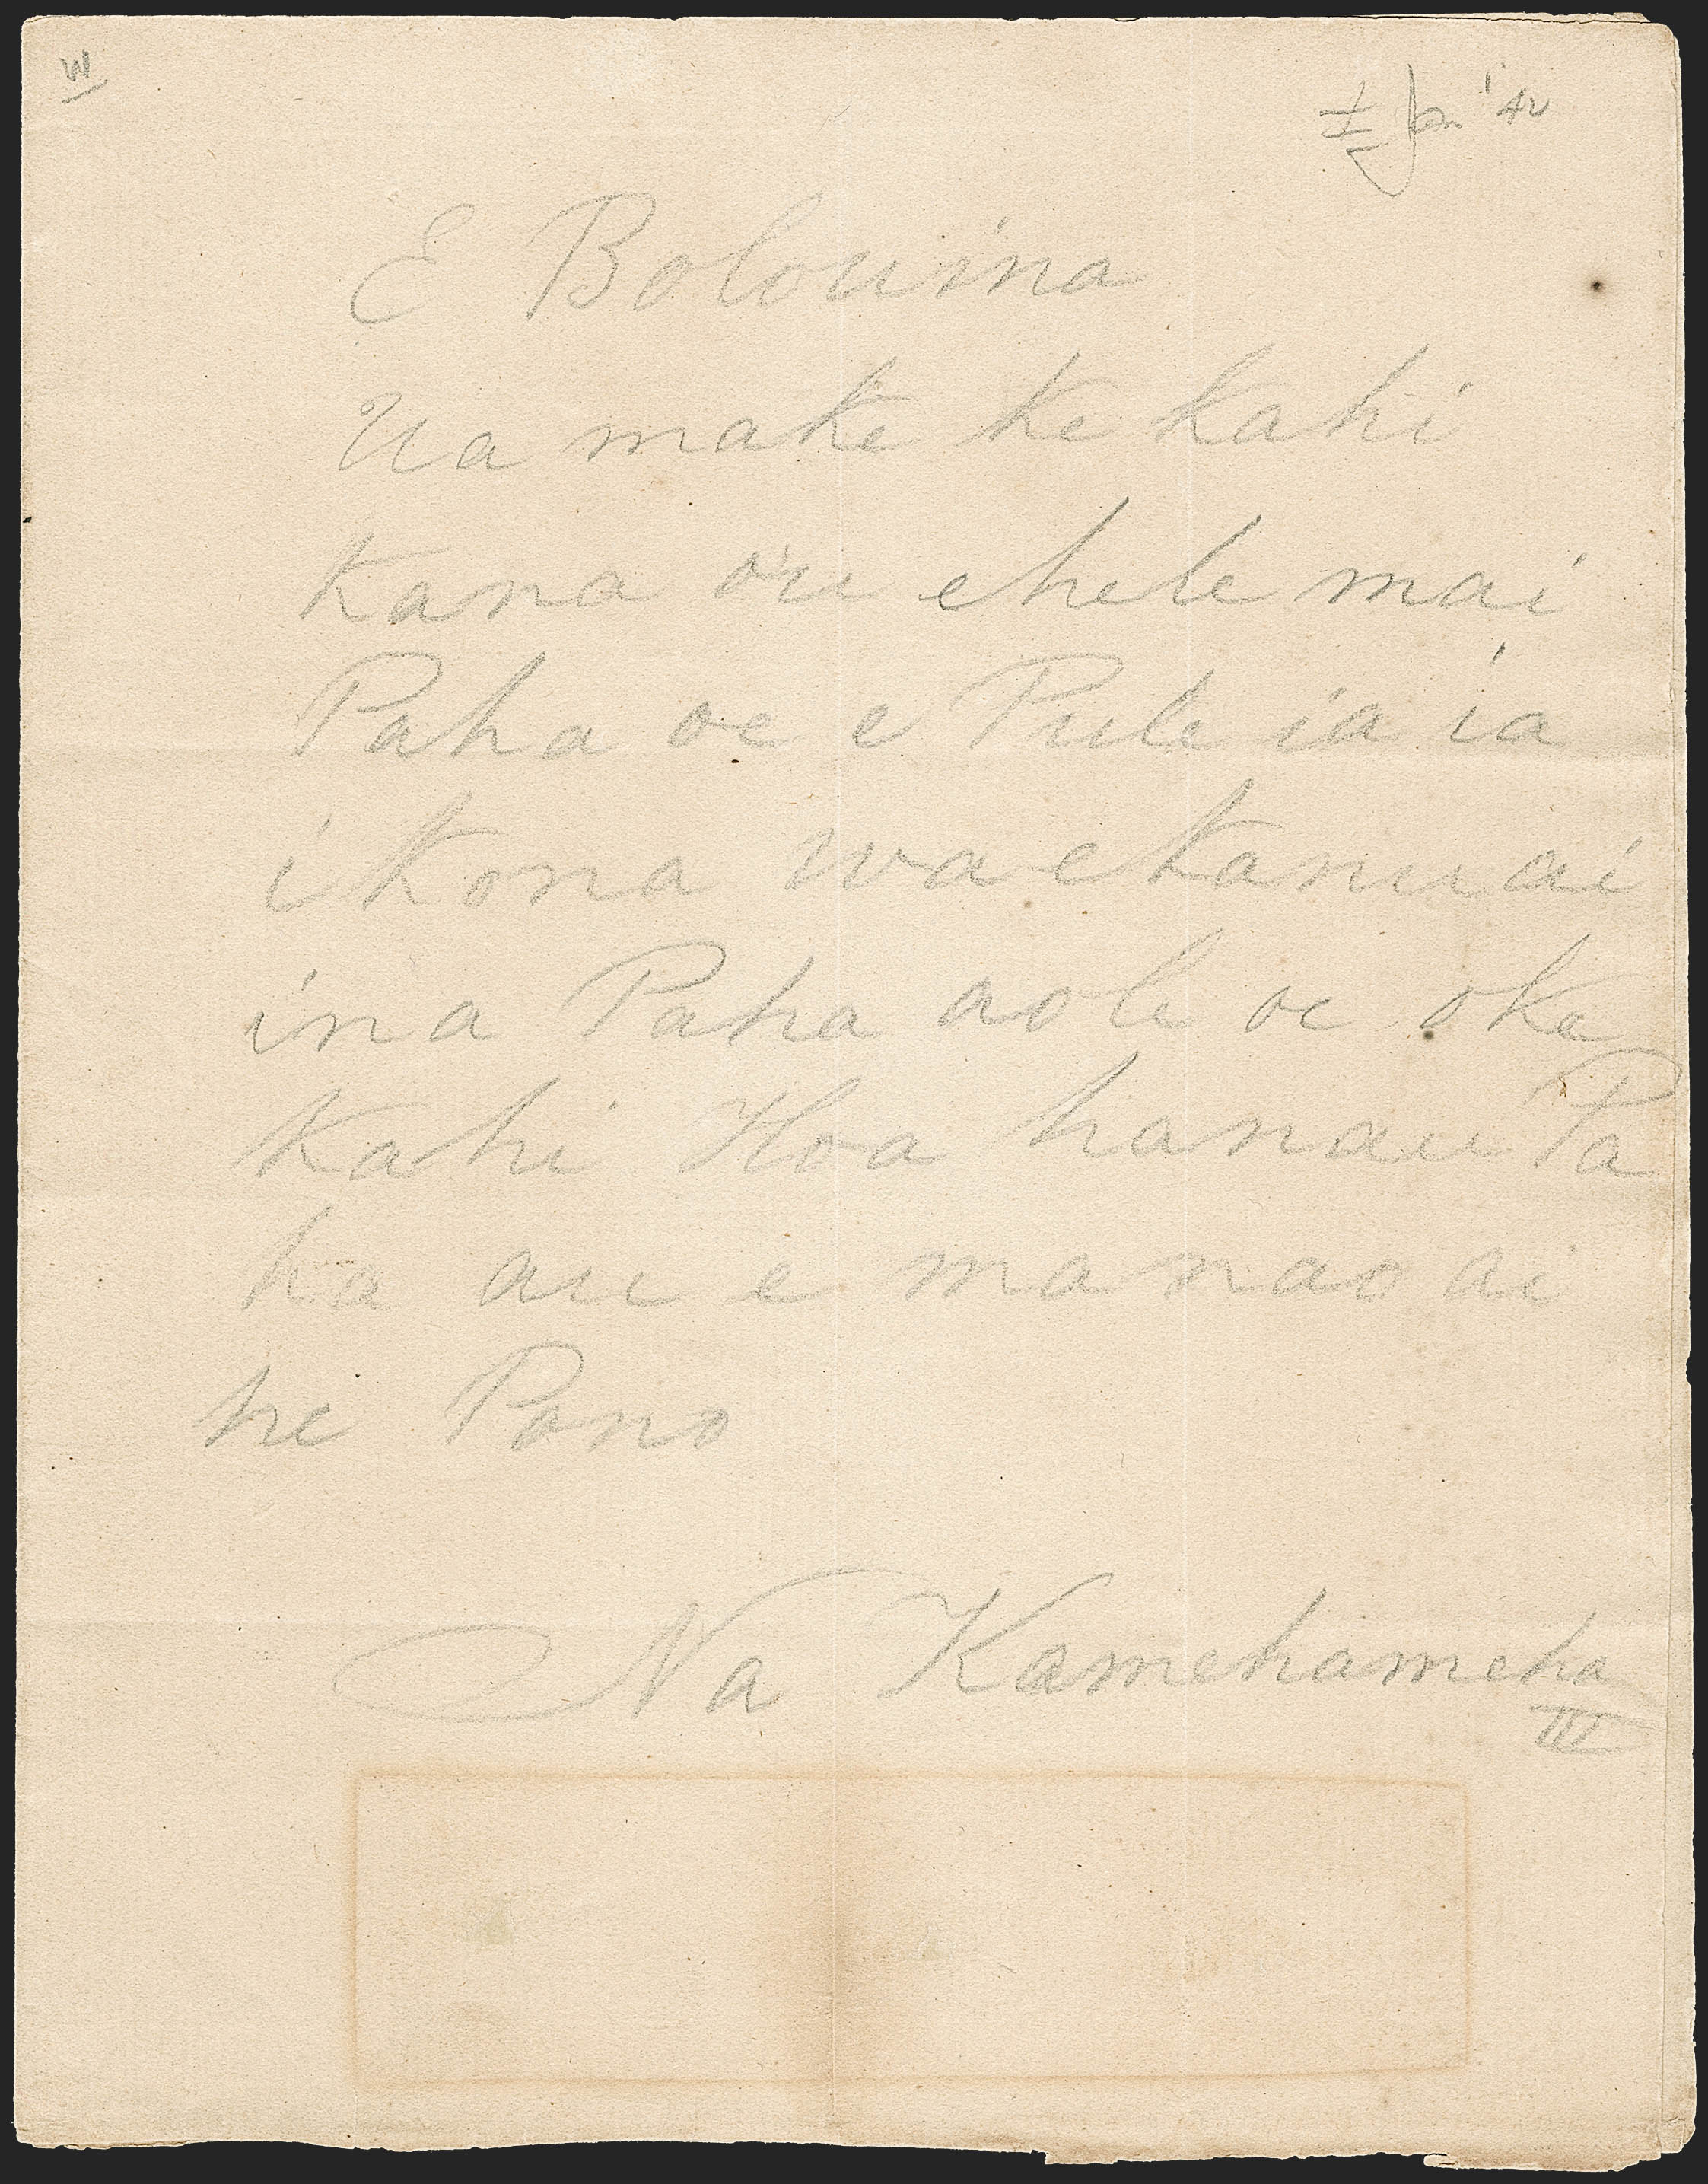 W
Jan 1 '42
E Bolouina
Ua make ke kahi
kana ou ehele mai
Paha oe e Pule ia ia
i kona wa e kanu ai
ina Paha aole oe o ke
kahi Hoa hanau Pa
ha au e manao ai
he Pono
Na Kamehameha
III